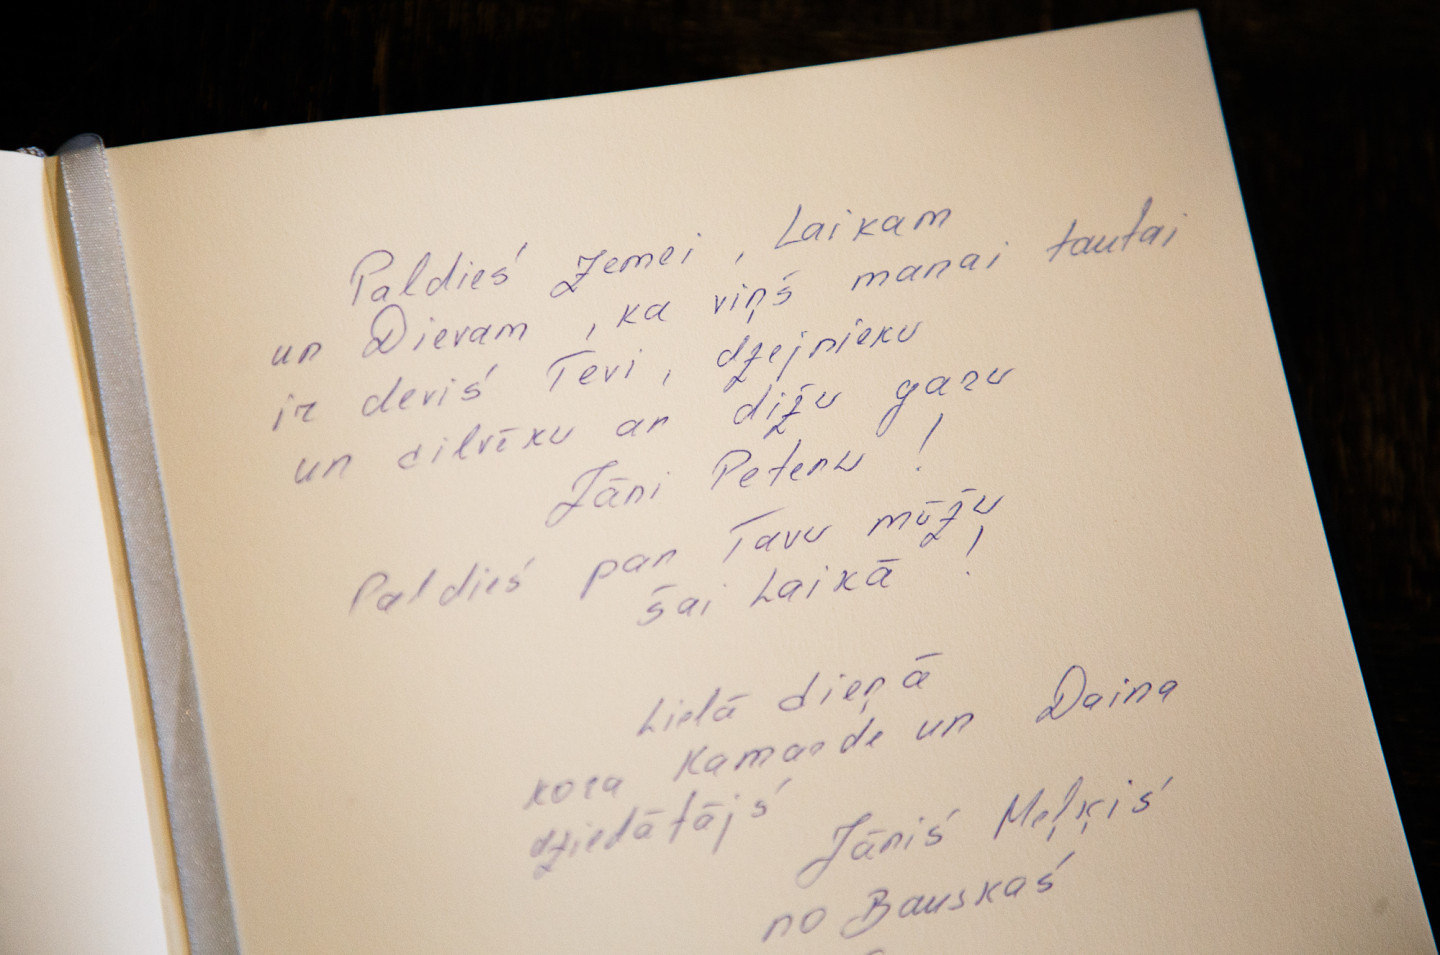 Paldies Zemei, Laikam
un Dievam, ka viņš manai tautai
ir devis Tevi, dzejnieku
un cilvēku ar dižu garu
Jāni Peteru!
Paldies par Tavu mūžu
šai Laikā!
Lielā dieņā
kora Kamarde un Daina
dziedātājs
Jānis Meļķis
no Bauskas